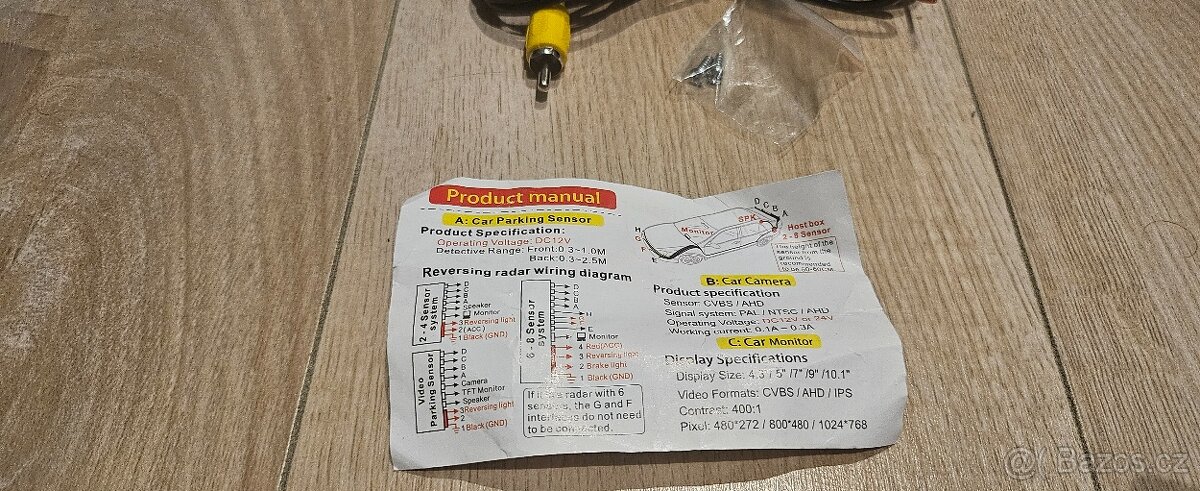 Product manual
A: Car Parking Sensor
Product Specification:
Operating Voltage: DC12V
Detective Range: Front:0.3~1.0M
Back:0.3~2.5M
Reversing radar wiring diagram
2 - 4 Sensor system
D
C
B
A
Speaker
Monitor
3 Reversing light
2 (ACC)
1 Black (GND)
Video Parking Sensor
D
C
B
A
Camera
TFT Monitor
Speaker
3 Reversing light
2
1 Black (GND)
6 - 8 Sensor system
D
C
B
A
H
E
Monitor
4 Red(ACC)
3 Reversing light
2 Brake light
1 Black (GND)
If it is a radar with 6
sensors, the G and F
interfaces do not need
to be connected.
D C B A
SPK
Monitor
H
G
F
E
Host box
2 - 8 Sensor
The height of the
sensor from the
ground is
recommended
to be 50-60CM
B: Car Camera
Product specification
Sensor: CVBS / AHD
Signal system: PAL / NTSC / AHD
Operating Voltage: DC12V or 24V
Working current: 0.1A ~ 0.3A
C: Car Monitor
Display Specifications
Display Size: 4.3" / 5" /7" /9" /10.1"
Video Formats: CVBS / AHD / IPS
Contrast: 400:1
Pixel: 480*272 / 800*480 / 1024*768
Bazos.cz